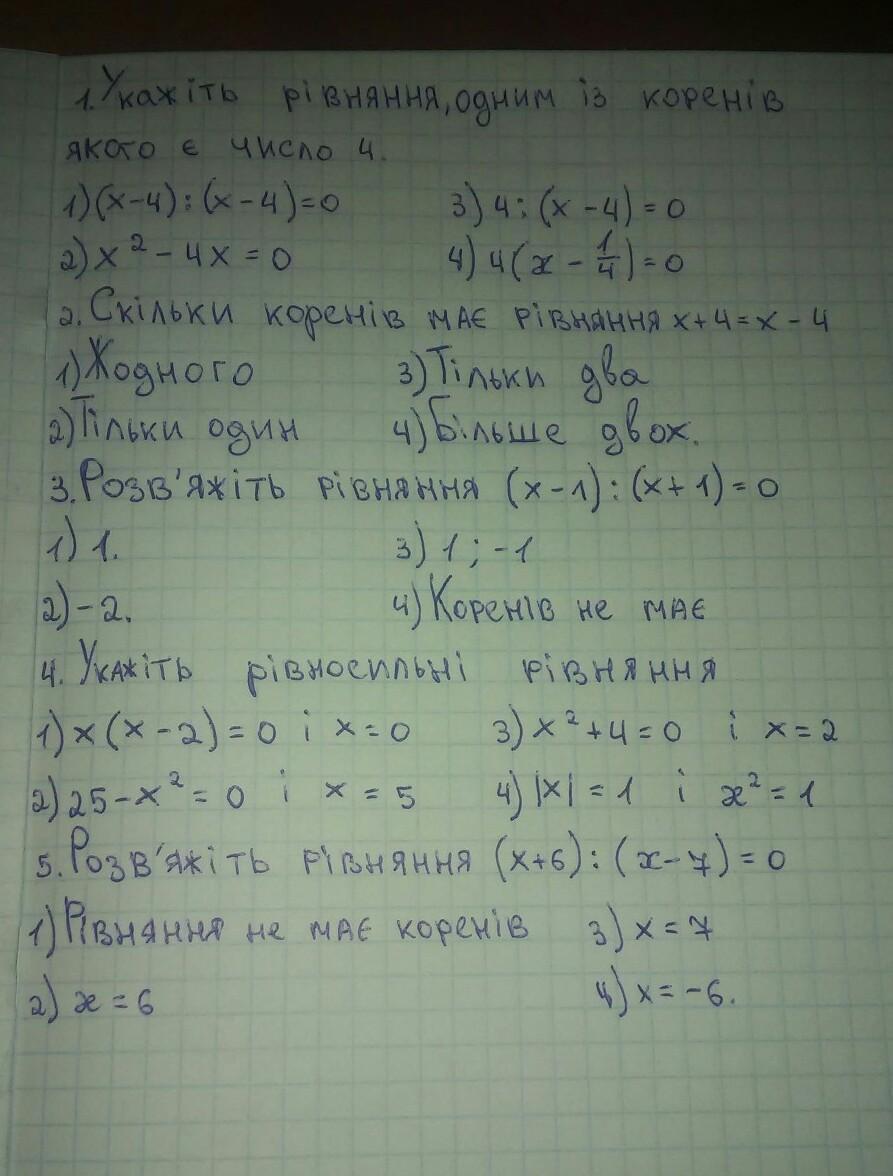 1. Укажіть рівняння, одним із коренів
якого є число 4.
1) (x-4) : (x-4) = 0 3) 4 : (x-4) = 0
2) x² - 4x = 0 4) 4(x - 1/4) = 0
2. Скільки коренів має рівняння x+4=x-4
1) Жодного 3) Тільки два
2) Тільки один 4) Більше двох.
3. Розв'яжіть рівняння (x-1) : (x+1) = 0
1) 1. 3) 1 ; -1
2) -2. 4) Коренів не має
4. Укажіть рівносильні рівняння
1) x(x-2) = 0 і x = 0 3) x² + 4 = 0 і x = 2
2) 25 - x² = 0 і x = 5 4) |x| = 1 і x² = 1
5. Розв'яжіть рівняння (x+6) : (x-7) = 0
1) Рівняння не має коренів 3) x = 7
2) x = 6 4) x = -6.